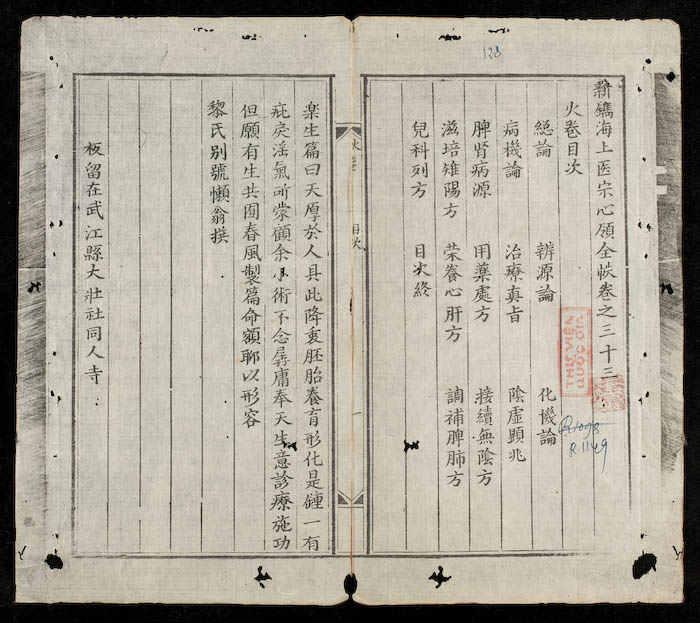 123
新鐫海上医宗心領全帙卷之三十三
火卷目次
緫論 辨源論 化機論
病機論 治療真旨 陰虛顕兆
脾肾病源 用藥處方 接續無陰方
滋培雉陽方 荣養心肝方 調補脾肺方
兒科列方 目次終
THƯ VIỆN
QUỐC GIA
R.1098
R.1149
目次
一
楽生篇曰天厚於人具此降衷胚胎養育形化是鍾一有
疵戾淫氣所蒙顧余小術不念孱庸奉天生意診療施功
但願有生共囿春風製篇命額聊以形容
黎氏别號懶翁撰
板留在武江縣大壯社同人寺